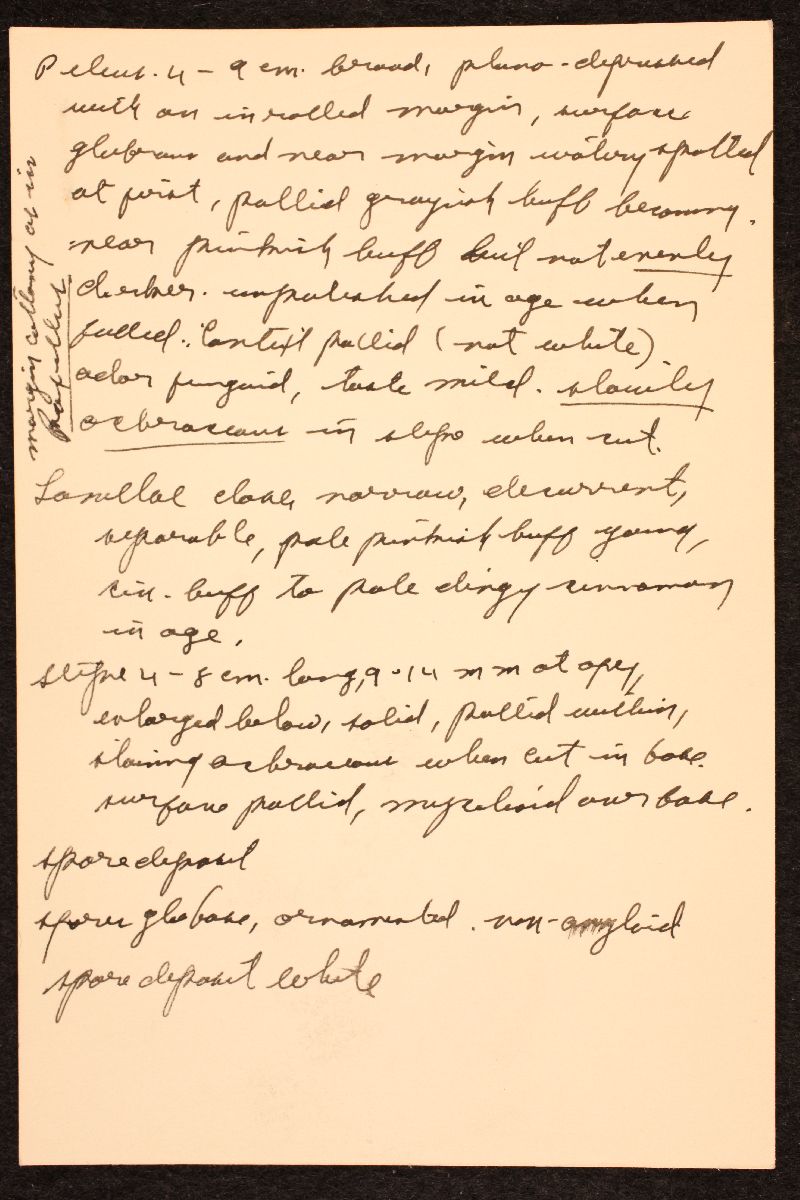 Pileus 4 - 9 cm. broad, plano-depressed
with an inrolled margin, surface
glabrous and near margin watery spotted
at first, pallid grayish buff becoming
near pinkish buff but not evenly
darker. unpolished in age when
faded. Context pallid (not white)
odor fungoid, taste mild. slowly
ochraceous in stipe when cut.
margin cottony as in
Lamellae close, narrow, decurrent,
separable, pale pinkish buff young,
cin. buff to pale dingy cinnamon
in age.
Stipe 4 - 8 cm. long, 9-14 mm at apex,
enlarged below, solid, pallid within,
staining ochraceous when cut in base.
surface pallid, mycelioid over base.
spore deposit
spores globose, ornamented. non-amyloid
spore deposit white